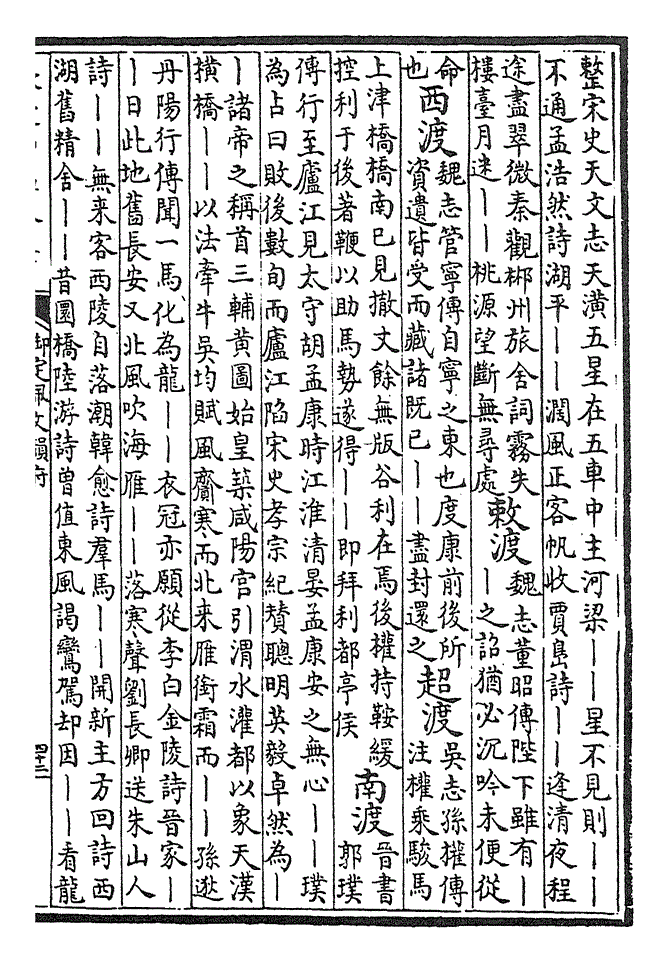 整宋史天文志天潢五星在五車中主河梁――星不見則――
不通孟浩然詩湖平――濶風正客帆收賈島詩――逢清夜程
途盡翠微秦觀郴州旅舍詞霧失
樓臺月迷――桃源望斷無尋處
敕渡
魏志董昭傳陛下雖有―
―之詔猶必沉吟未便從
命
也
西渡
魏志管寧傳自寧之東也度康前後所
資遺皆受而藏諸既已――盡封還之
超渡
吳志孫權傳
注權乘駿馬
上津橋橋南已見撤丈餘無版谷利在焉後權持鞍緩
控利于後著鞭以助馬勢遂得――即拜利都亭侯
南渡
晉書
郭璞
傳行至廬江見太守胡孟康時江淮清晏孟康安之無心――璞
為占曰敗後數旬而廬江陷宋史孝宗紀贊聰明英毅卓然為―
―諸帝之稱首三輔黃圖始皇築咸陽宮引渭水灌都以象天漢
橫橋――以法牽牛吳均賦風齎寒而北来雁銜霜而――孫逖
丹陽行傳聞一馬化為龍――衣冠亦願從李白金陵詩晉家―
―日此地舊長安又北風吹海雁――落寒聲劉長卿送朱山人
詩――無来客西陵自落潮韓愈詩羣馬――開新主方回詩西
湖舊精舍――昔圜橋陸游詩曾值東風謁鸞駕却因――看龍
御定佩文韻府